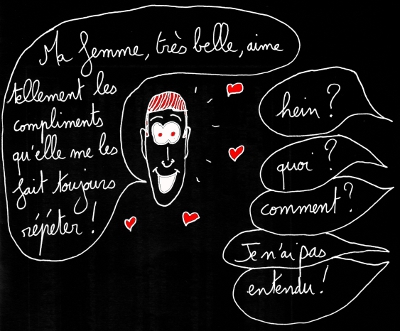 Ma femme, très belle, aime
tellement les
compliments
qu'elle me les
fait toujours
répéter !
hein ?
quoi ?
comment ?
Je n'ai pas
entendu !